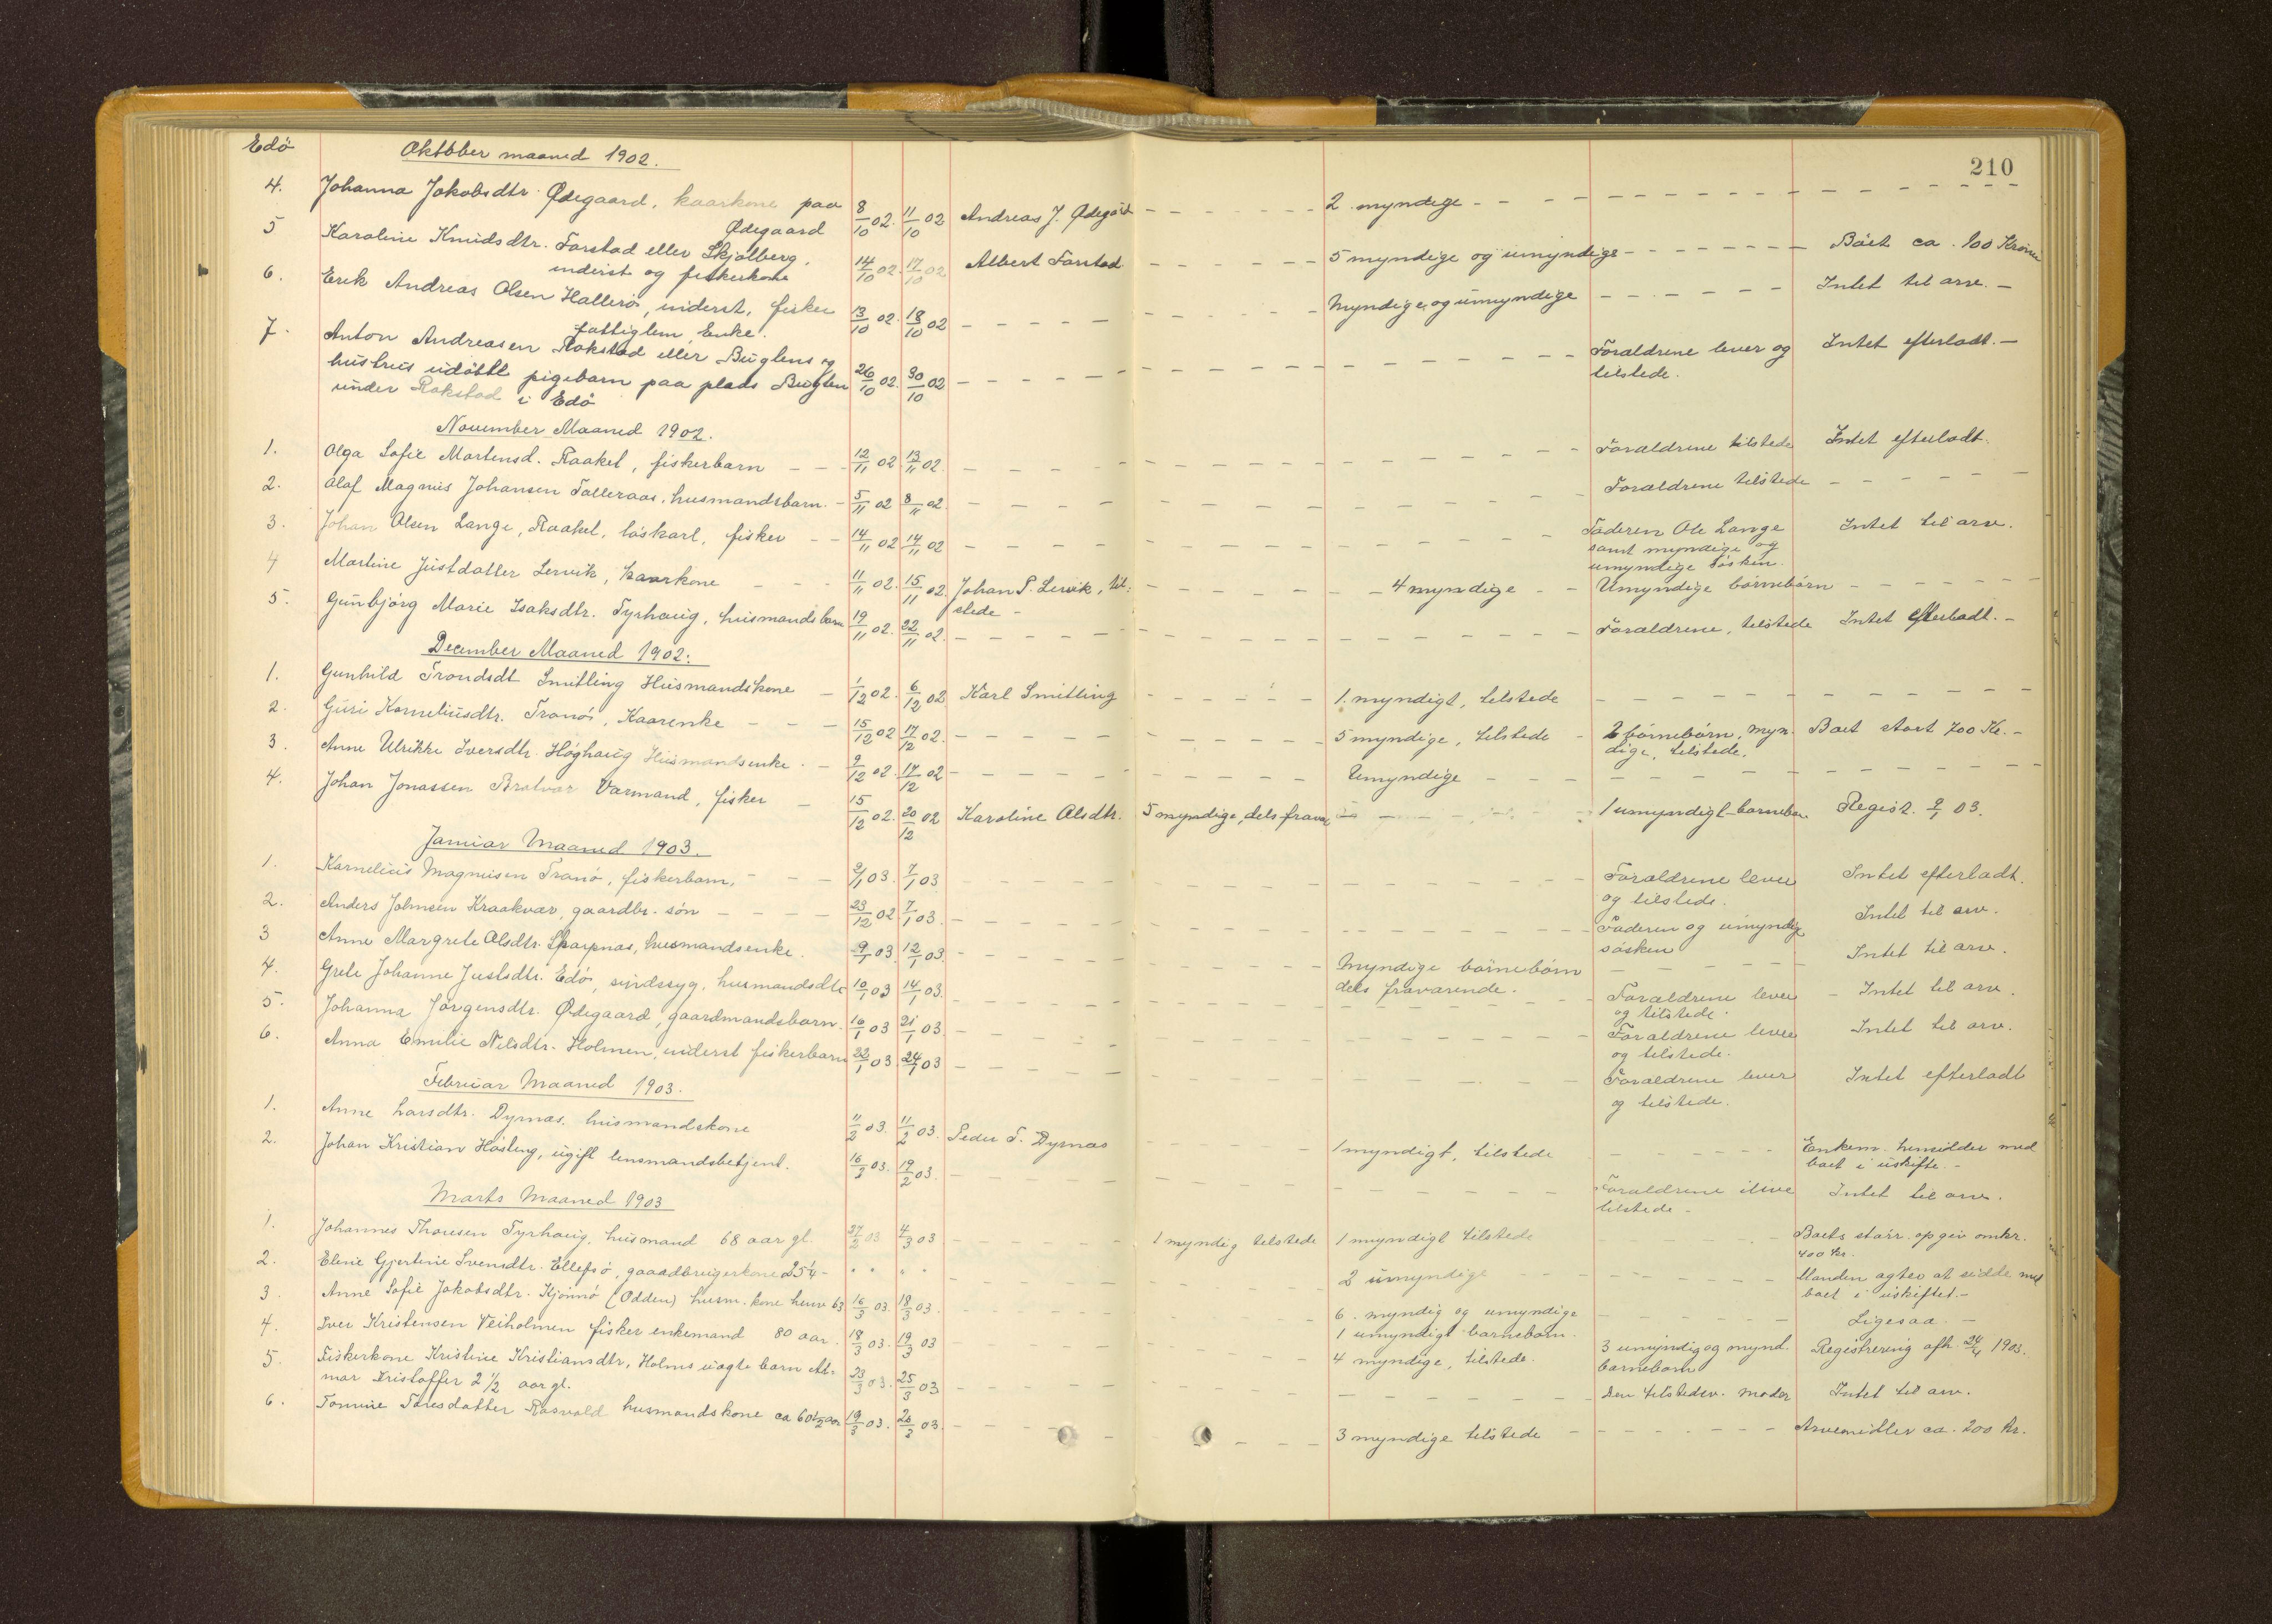 210
Edö
Oktober maaned 1902.
4. Johanna Jakobsdtr. Ødegaard, kaarkone paa Ødegaard 8/10 02. 11/10 02 Andreas J. Ødegård - - - 2 myndige - - -
5 Karoline Knudsdtr. Forstad eller Skjølberg, 14/10 02. 17/10 02 Albert Forstad - - - 5 myndige og umyndige - - - Böet ca. 100 Kroner
inderst og fiskerkone
6. Erik Andreas Olsen Hallerö, inderst, fisker 13/10 02. 18/10 02 - - - Myndige og umyndige - - - Intet til arv. -
fattiglem, Enke.
7. Anton Andreasen Rokstad eller Buglens og
hustrus udöbte pigebarn paa plads Buglen 26/10 02. 30/10 02 - - - Foraldrene lever og tilstede. Intet efterladt. -
under Rokstad i Edö
November Maaned 1902.
1. Olga Sofie Martensd. Raaket, fiskerbarn - - 12/11 02 13/11 02. - - - Foraldrene tilstede Intet efterladt.
2. Olaf Magnus Johansen Talleraas, husmandsbarn. - 5/11 02 8/11 02. - - - Foraldrene tilstede - - -
3. Johan Olsen Lange, Raaket, löskarl, fisker - - 14/11 02 14/11 02 - - - Faderen Ole Lange Intet til arv.
samt myndige og
umyndige sösken.
4 Martine Justdatter Lervik, kaarkone - - - 11/11 02. 15/11 02. Johan P. Lervik, til- - - - 4 myndige - - Umyndige börnebörn - - -
stede -
5. Gunbjörg Marie Isaksdtr. Tyrhaug, husmandsbarn 19/11 02. 22/11 02. - - - Foraldrene, tilstede Intet efterladt. -
December Maaned 1902.
1. Gunhild Trondsdt Smitling Husmandskone - 1/12 02. 6/12 02 Karl Smitling - - - 1. myndigt, tilstede - - -
2. Guri Korneliusdtr. Tranö, Kaarenke - - - 15/12 02 17/12 02. - - - 5 myndige, tilstede - 2 börnebörn, myn- Boet stort 700 Kr. -
dige, tilstede.
3. Anne Ulrikke Iversdtr. Höghaug Husmandsenke. - 9/12 02. 17/12 02 - - - Umyndige - - -
4. Johan Jonassen Bratvær Varmand, fisker - 15/12 02. 20/12 02 Karoline Olsdtr. 5 myndige, dels frava - - - 1 umyndigt barnebarn Regist. 9/1 03.
Januar Maaned 1903.
1. Kornelius Magnusen Tranö, fiskerbarn, - - - 2/1 03. 7/1 03 - - - Foraldrene lever Intet efterladt.
og tilstede.
2. Anders Johnsen Kraakvær, gaardbr. sön - - - 23/12 02 7/1 03. - - - Faderen og umyndig Intet til arv.
sösken
3 Anne Margrete Olsdtr. Skarpnas, husmandsenke. 9/1 03. 12/1 03. - - - Myndige börnebörn - - - Intet til arv.
dels fraværende.
4. Grete Johanne Justsdtr. Edö, sindssyg, husmandsdtr 10/1 03 14/1 03. - - - Foraldrene lever - Intet til arv.
og tilstede.
5. Johanna Jörgensdtr. Ødegaard, gaardmandsbarn. 16/1 03 21/1 03 - - - Foraldrene lever Intet til arv.
og tilstede.
6. Anna Emilie Nilsdtr. Holmen, inderst fiskerbarn 22/1 03. 24/1 03 - - - Foraldrene lever Intet efterladt
og tilstede.
Februar Maaned 1903.
1. Anne Larsdtr. Dyrnæs, husmandskone 11/2 03. 11/2 03. Peder T. Dyrnæs - - - 1 myndigt, tilstede - - - Enkem. hensidder med
boet i uskifte. -
2. Johan Kristian Hösling, ugift lensmandsbetjent. 16/2 03. 19/2 03. - - - Foraldrene ilive Intet til arv.
tilstede -
Marts Maaned 1903
1. Johannes Thoresen Tyrhaug, husmand 68 aar gl. 27/2 03 4/3 03 - - - 1 myndig tilstede 1 myndigt tilstede - - - Boets störr. opgiv omkr.
400 kr.
2. Eline Gjertine Svensdtr. Ellefsö, gaardbrugerkone 25¼ - " " " " - - - 2 umyndige - - - Manden agter at sidde med
boet i uskiftet. -
3. Anne Sofie Jakobsdtr. Kjönnö (Odden) husm. kone henv 63 16/3 03. 18/3 03. - - - 6. myndig og umyndige - - - Ligesaa. -
1 umyndigt barnebarn.
4. Iver Kristensen Veiholmen fisker enkemand 80 aar. 18/3 03. 19/3 03 - - - 4 myndige, tilstede. 3 umyndig og mynd. Registrering afh. 24/4 1903.
barnebarn
5. Fiskerkone Kristine Kristiansdtr, Holms uægte barn Al-
mar Kristoffer 2 1/2 aar gl. 23/3 03. 25/3 03 - - - den tilstedev. moder Intet til arv.
6. Tomine Taresdatter Rosvold husmandskone ca 60 1/2 aar 19/3 03. 26/3 03. - - - 3 myndige tilstede - - - Arvemidler ca. 200 Kr.